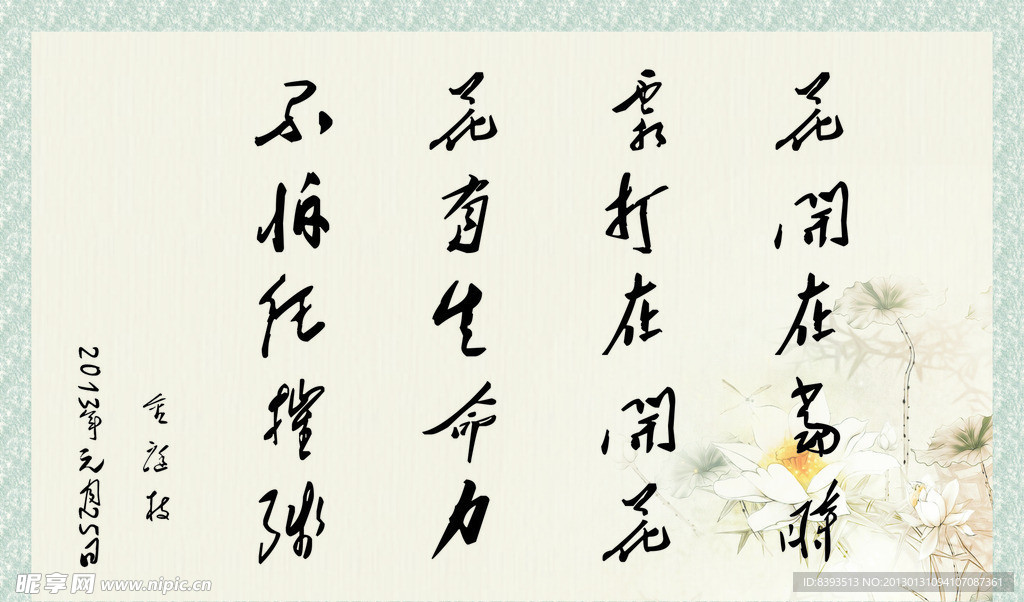 花開在當時
霜打在開花
花有生命力
不怕任摧殘
2013年元月5日
昵享网 www.nipic.cn
ID:8393513 NO:20130131094107087361